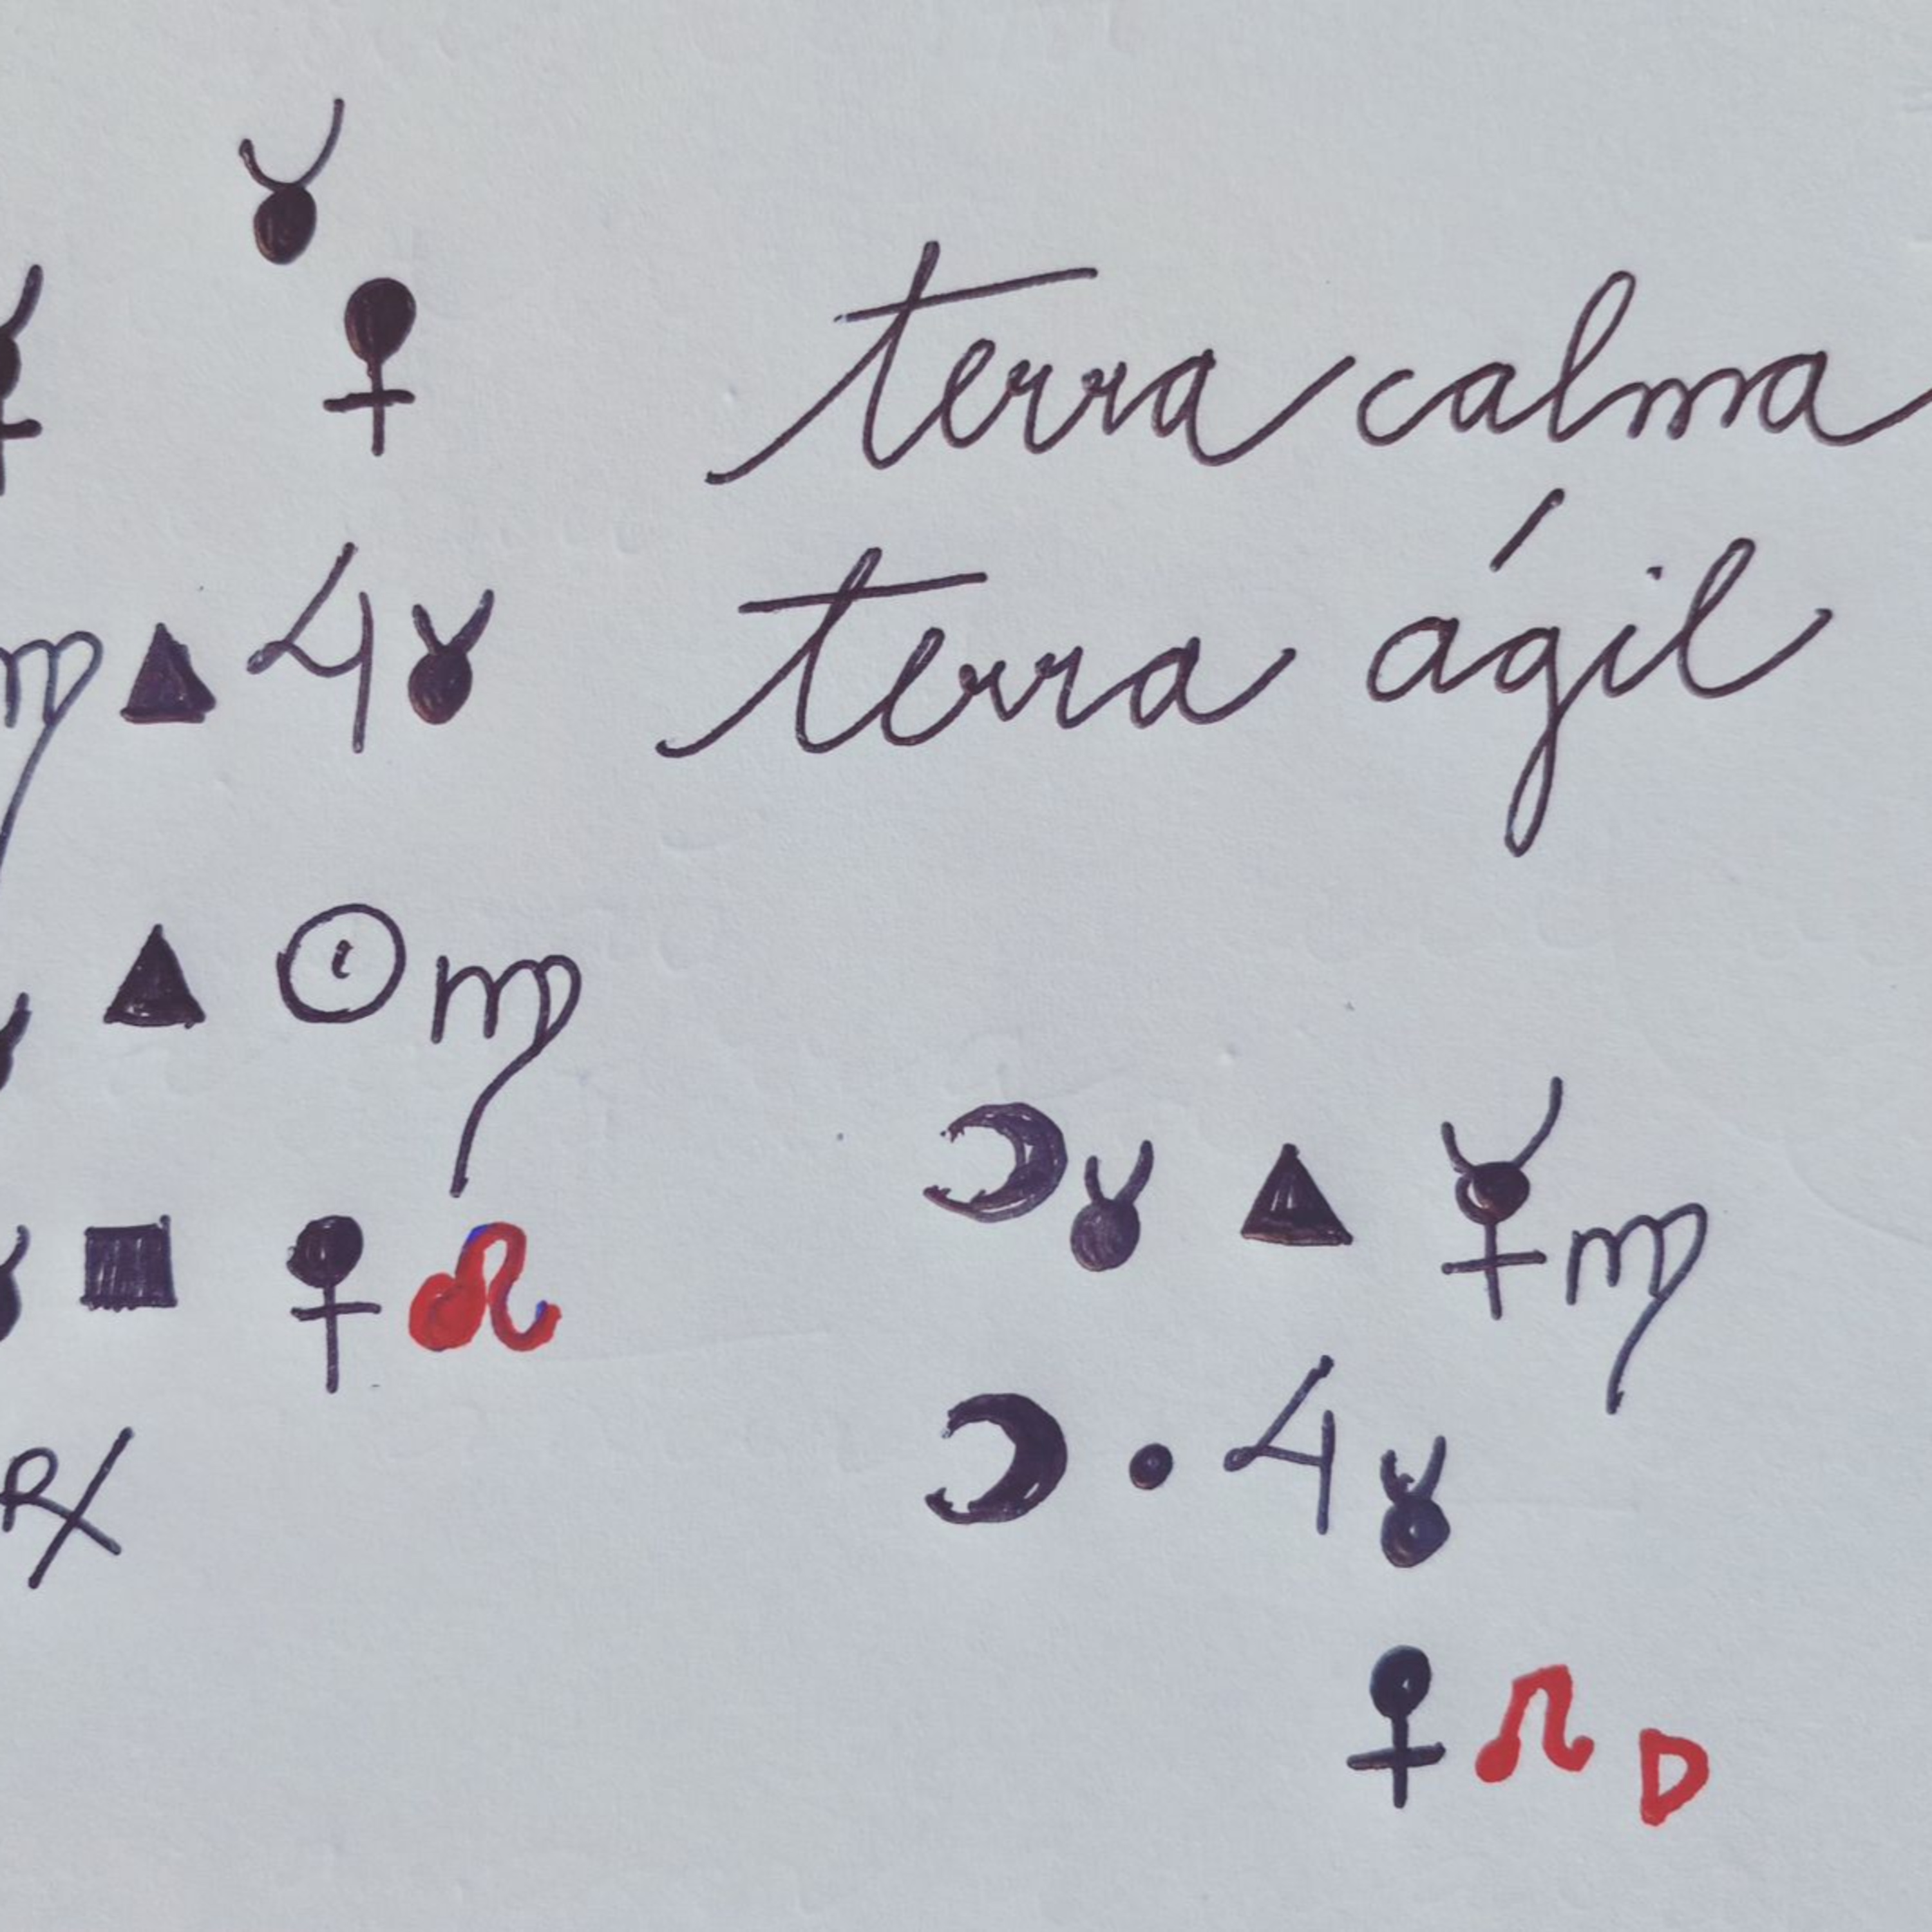 ♉
♀ terra calma
♍ ▲ ♃ ♉ terra ágil
▲ ☉ ♍
☽ ♉ ▲ ☿ ♍
■ ♀ ♌
℞
☽ • ♃ ♉
♀ ♌ D